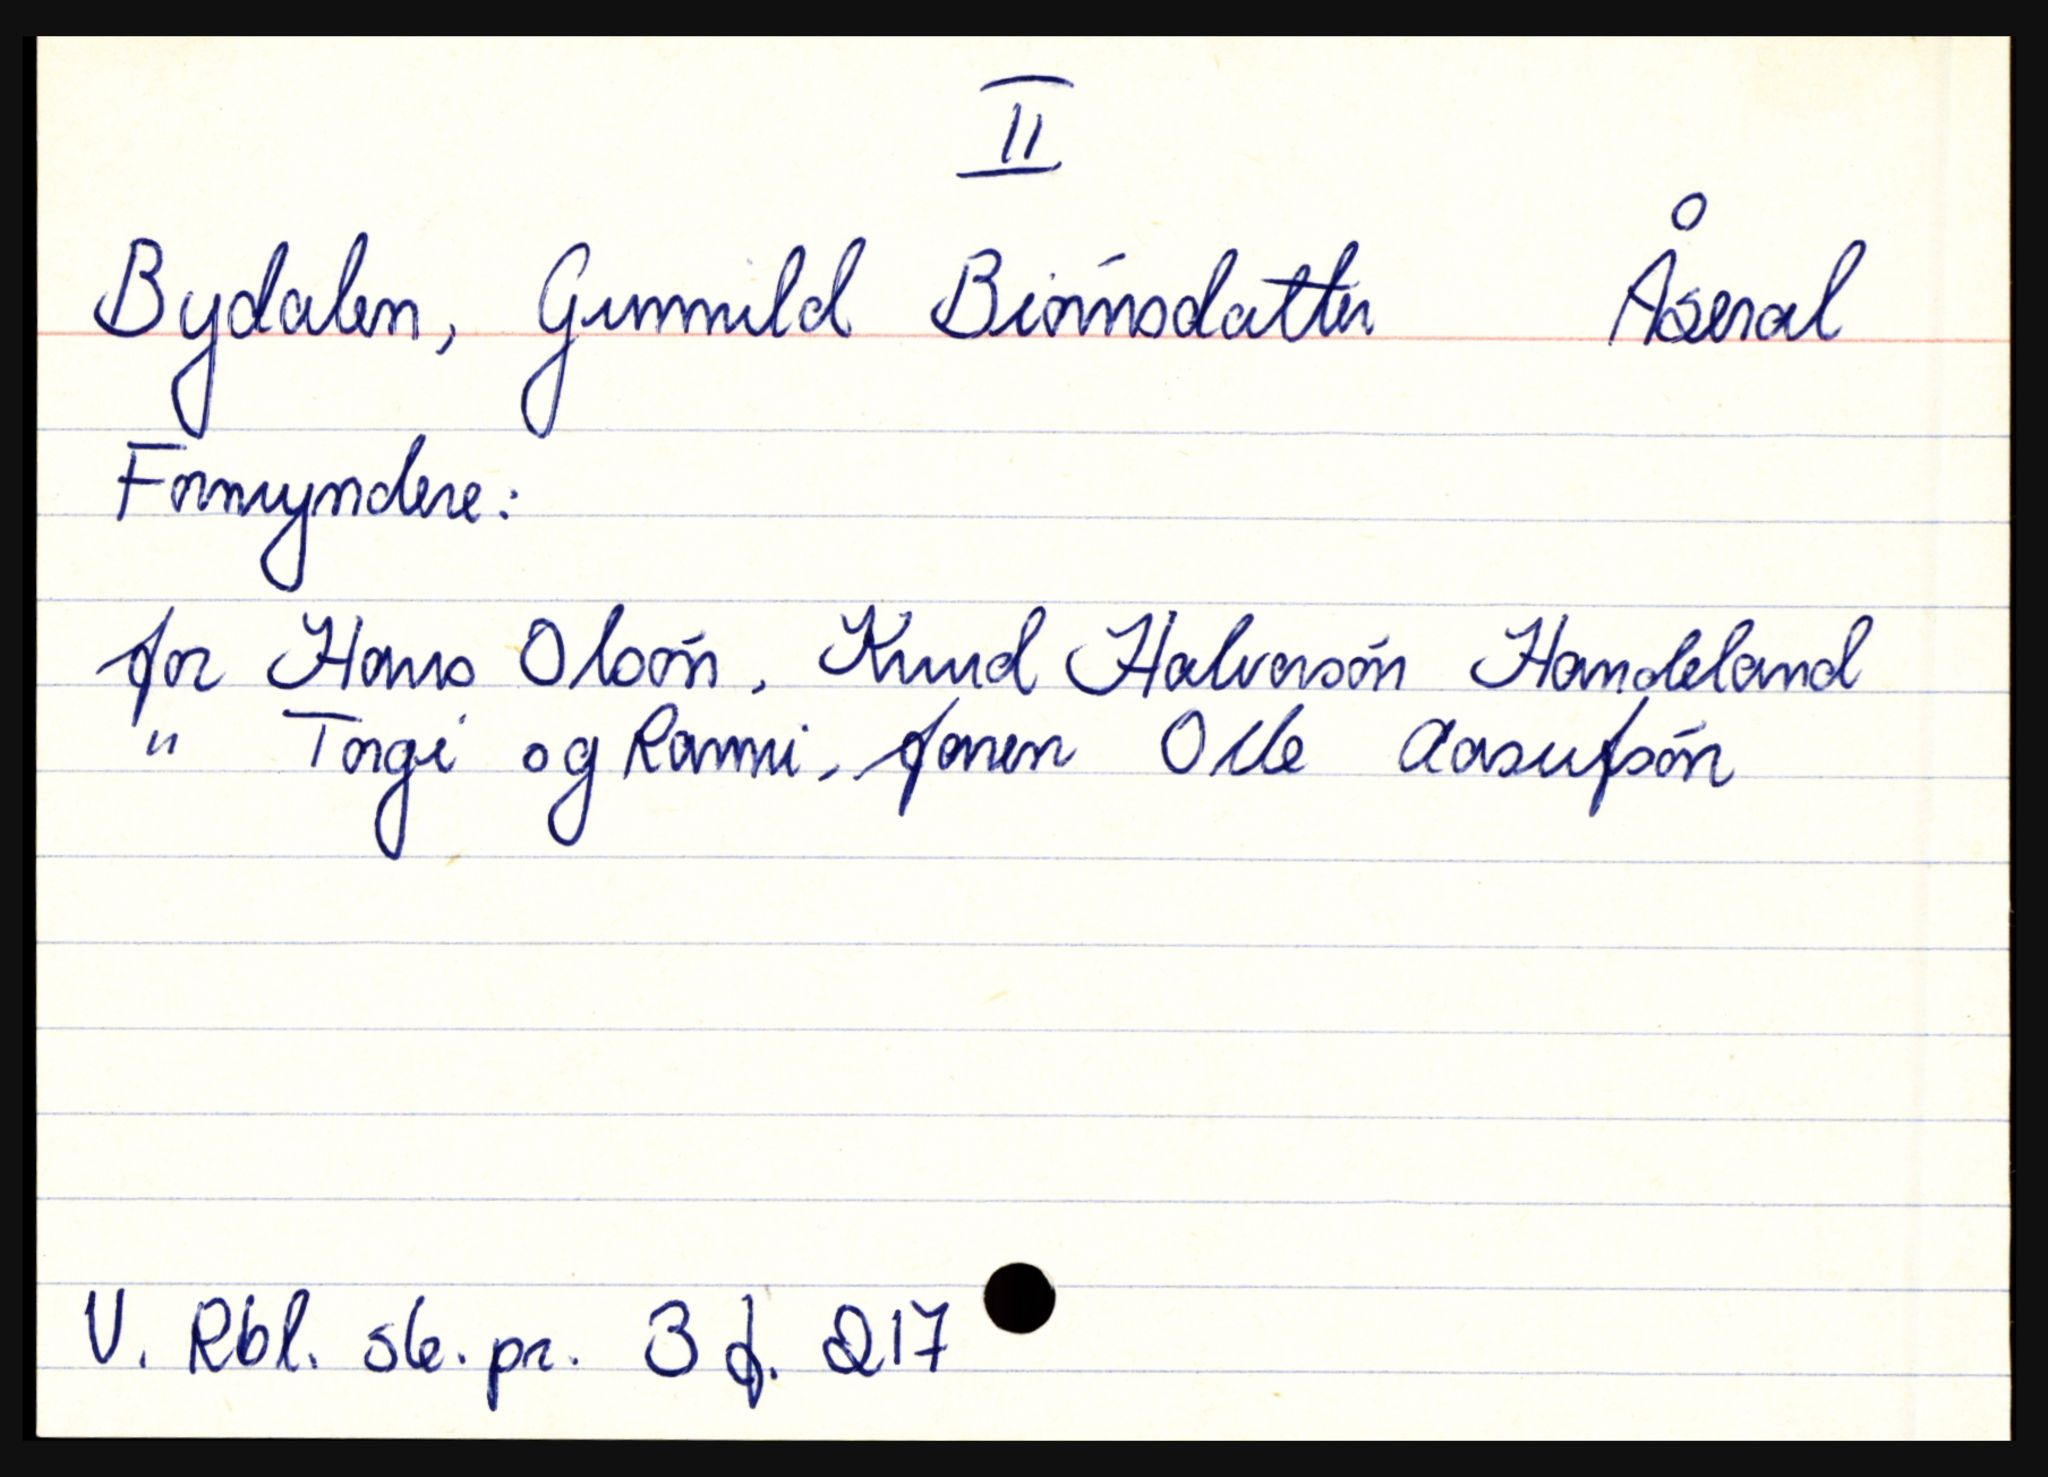 II
Bydalen, Gunnild Biórnsdatter Åseral
Formyndere:
for Hans Olsón, Knud Halvorsón Handeland
" Torgi og Ranni, faren Olle Aasufsón
V. Rbl. sk. pr. 3 f. 217